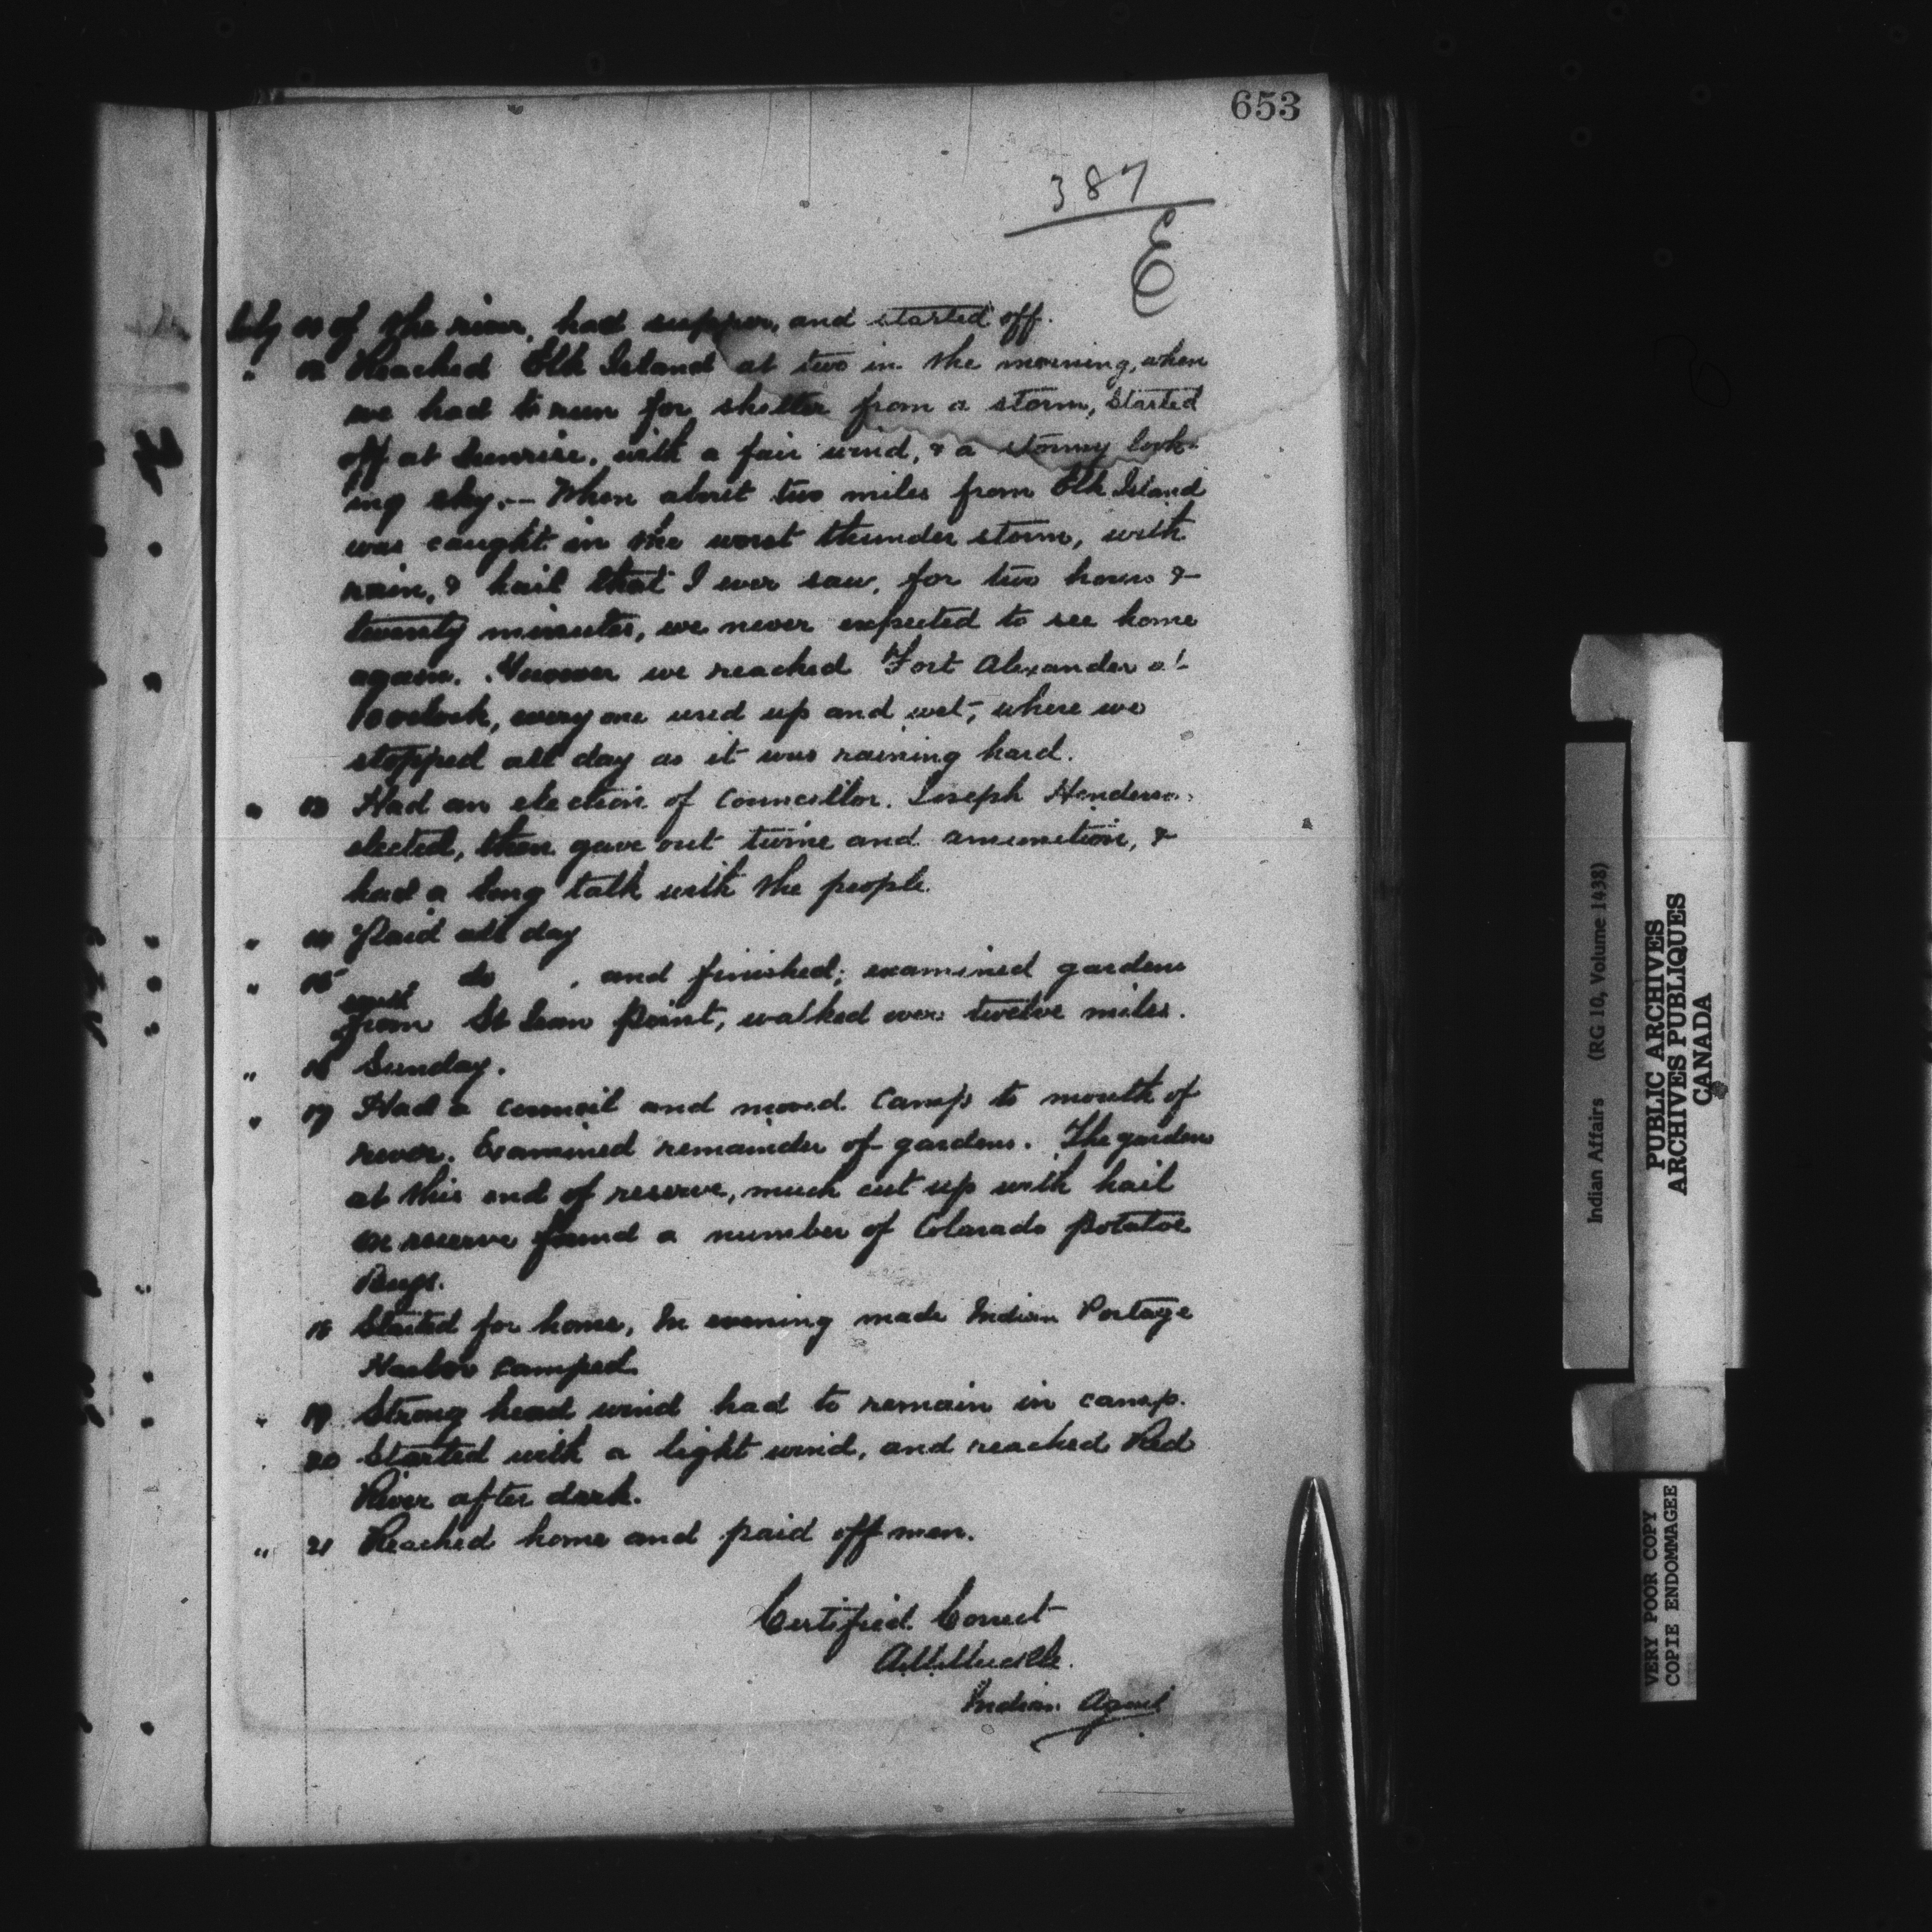 653
387
E
July 11 of the river, had supper, and started off.
" 12 Reached Elk Island at two in the morning, when
we had to run for shelter from a storm, started
off at sunrise, with a fair wind, & a stormy look-
ing sky.-- When about two miles from Elk Island
was caught in the worst thunder storm, with
rain, & hail that I ever saw, for two hours &
twenty minutes, we never expected to see home
again. However we reached Fort Alexander at
10 oclock, every one used up and wet, where we
stopped all day as it was raining hard.
" 13 Had an election of Councillor. Joseph Henderson
elected, then gave out twine and amunition, &
had a long talk with the people.
" 14 Paid all day
" 15 do , and finished; examined gardens
from St Point, walked over twelve miles.
" 16 Sunday.
" 17 Had a council and moved camp to mouth of
river. Examined remainder of gardens. The gardens
at this end of reserve, much cut up with hail
on reserve found a number of Colarado potatoe
Bugs.
18 Started for home, In evening made Indian Portage
Harbor camped
" 19 Strong head wind had to remain in camp.
" 20 Started with a light wind, and reached Red
River after dark.
" 21 Reached home and paid off men.
Certified Correct
Indian Agent
Indian Affairs (RG 10, Volume 1438)
PUBLIC ARCHIVES
ARCHIVES PUBLIQUES
CANADA
VERY POOR COPY
COPIE ENDOMMAGEE